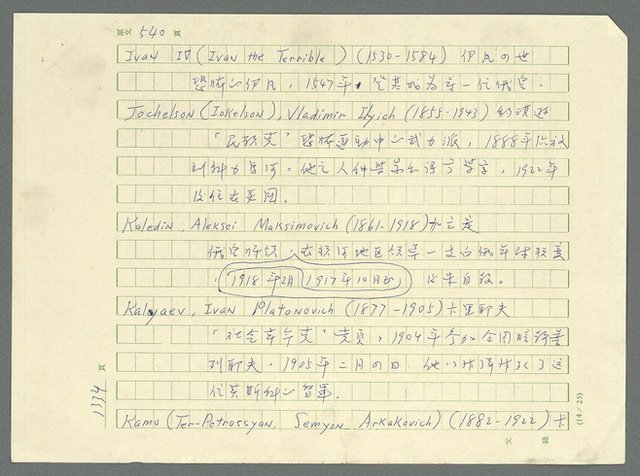 540 頁
Ivan IV (Ivan the Terrible) (1530-1584) 伊凡四世
恐怖的伊凡，1547年，登基成為第一位俄皇。
Jochelson (Iokelson), Vladimir Ilyich (1855-1943)
「民意党」恐怖運動中的武力派，1888年流放
到科力馬河。他是人种学家和語言学家，1922年
後住在美國。
Kaledin, Aleksei Maksimovich (1861-1918) 加之是
俄皇将领，在頓河地区领导一支白俄軍
1918年2月 1917年10月 後来自殺。
Kalyaev, Ivan Platonovich (1877-1905) 卡里耶夫
「社会革命党」党員，1904年参加企圖暗殺普
列耶夫。1905年二月四日，他以炸彈炸死了這
位莫斯科的督軍。
Kamo (Ter-Petrossyan, Semyon Arkakovich) (1882-1922) 卡
1334 頁
(14 / 25)